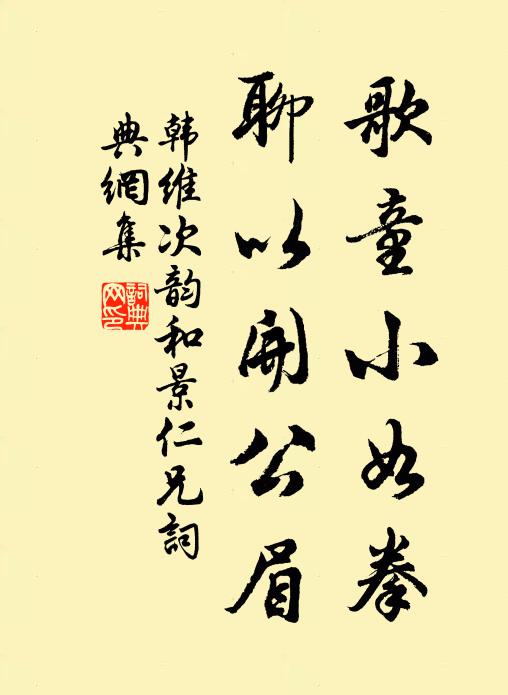 歌童小如拳
聊以開公眉
韩维次韵和景仁兄詞
典網集
詞典
网印